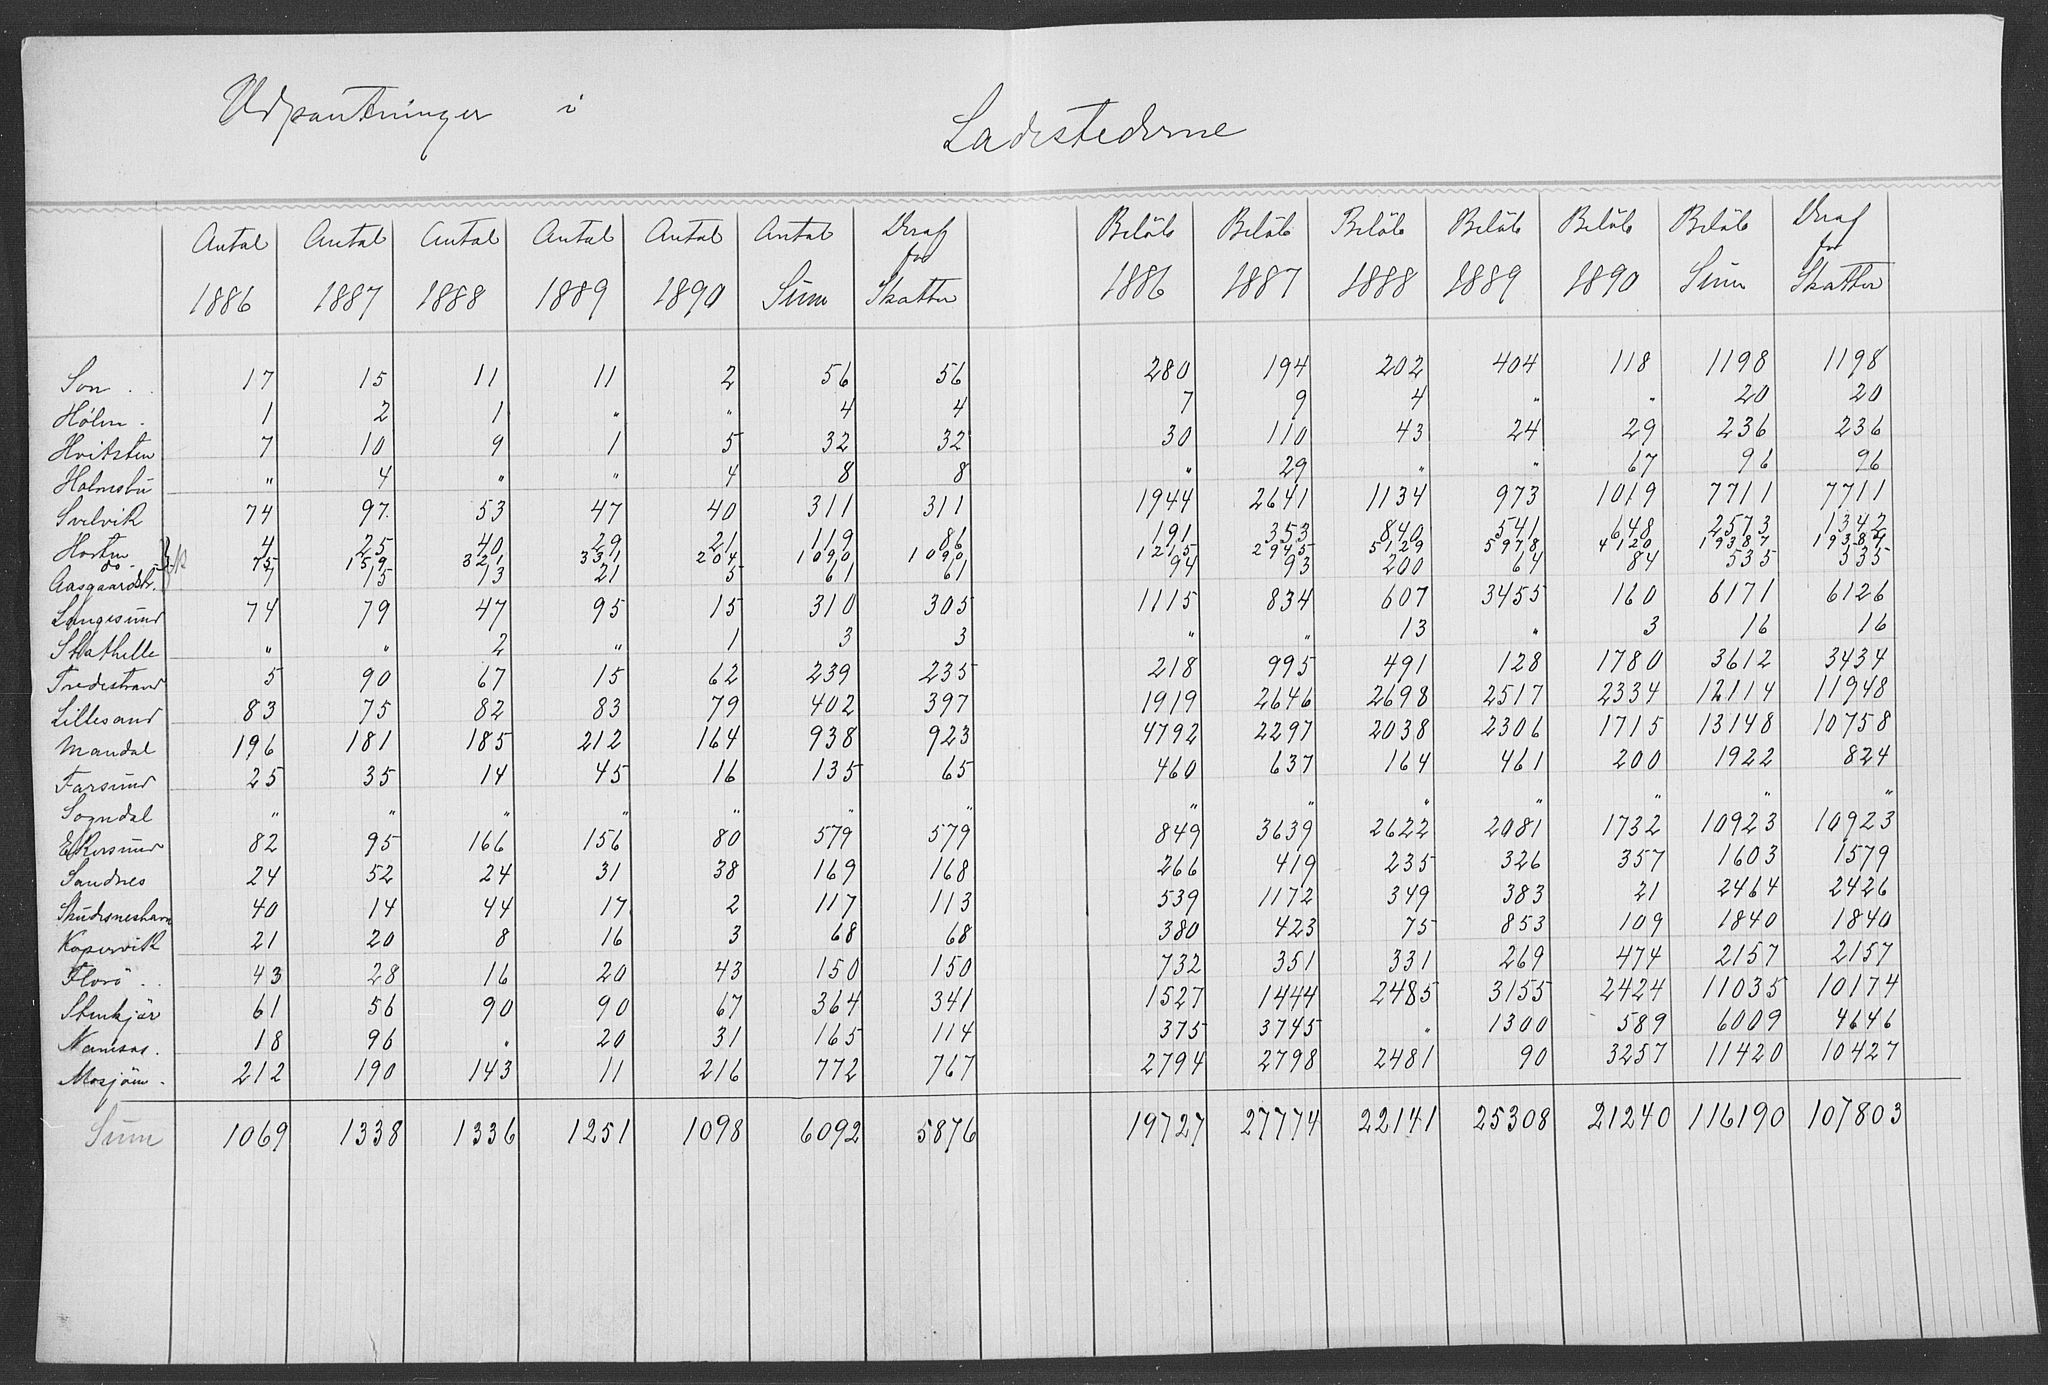 Udpantninger i Ladestederne
Antal Antal Antal Antal Antal Antal Deraf Beløb Beløb Beløb Beløb Beløb Beløb Deraf
for for
1886 1887 1888 1889 1890 Sum Skatter 1886 1887 1888 1889 1890 Sum Skatter
Son . . 17 15 11 11 2 56 56 280 194 202 404 118 1198 1198
Hölen . 1 2 1 " " 4 4 7 9 4 " " 20 20
Hvitsten 7 10 9 1 5 32 32 30 110 43 24 29 236 236
Holmsbu " 4 " " 4 8 8 " 29 " " 67 96 96
Svelvik 74 97 53 47 40 311 311 1944 2641 1134 973 1019 7711 7711
Horten 4 25 40 29 21 119 86 191 353 840 541 648 2573 1342
do. 75 159 321 331 204 1090 1090 1215 2945 5129 5978 4120 19387 19387
Aasgaardstr. 7 15 13 21 5 61 61 94 93 200 64 84 535 535
Langesund 74 79 47 95 15 310 305 1115 834 607 3455 160 6171 6126
Stathelle " " 2 " 1 3 3 " " 13 " 3 16 16
Tvedestrand 5 90 67 15 62 239 235 218 995 491 128 1780 3612 3434
Lillesand 83 75 82 83 79 402 397 1919 2646 2698 2517 2334 12114 11948
Mandal 196 181 185 212 164 938 923 4792 2297 2038 2306 1715 13148 10758
Farsund 25 35 14 45 16 135 65 460 637 164 461 200 1922 824
Sogndal " " " " " " " " " " " " " "
Ekersund 82 95 166 156 80 579 579 849 3639 2622 2081 1732 10923 10923
Sandnes 24 52 24 31 38 169 168 266 419 235 326 357 1603 1579
Skudesneshavn 40 14 44 17 2 117 113 539 1172 349 383 21 2464 2426
Kopervik 21 20 8 16 3 68 68 380 423 75 853 109 1840 1840
Florö . . 43 28 16 20 43 150 150 732 351 331 269 474 2157 2157
Stenkjär 61 56 90 90 67 364 341 1527 1444 2485 3155 2424 11035 10174
Namsos . 18 96 . 20 31 165 114 375 3745 " 1300 589 6009 4646
Mosjöen . 212 190 143 11 216 772 767 2794 2798 2481 90 3257 11420 10427
Sum 1069 1338 1336 1251 1098 6092 5876 19727 27774 22141 25308 21240 116190 107803